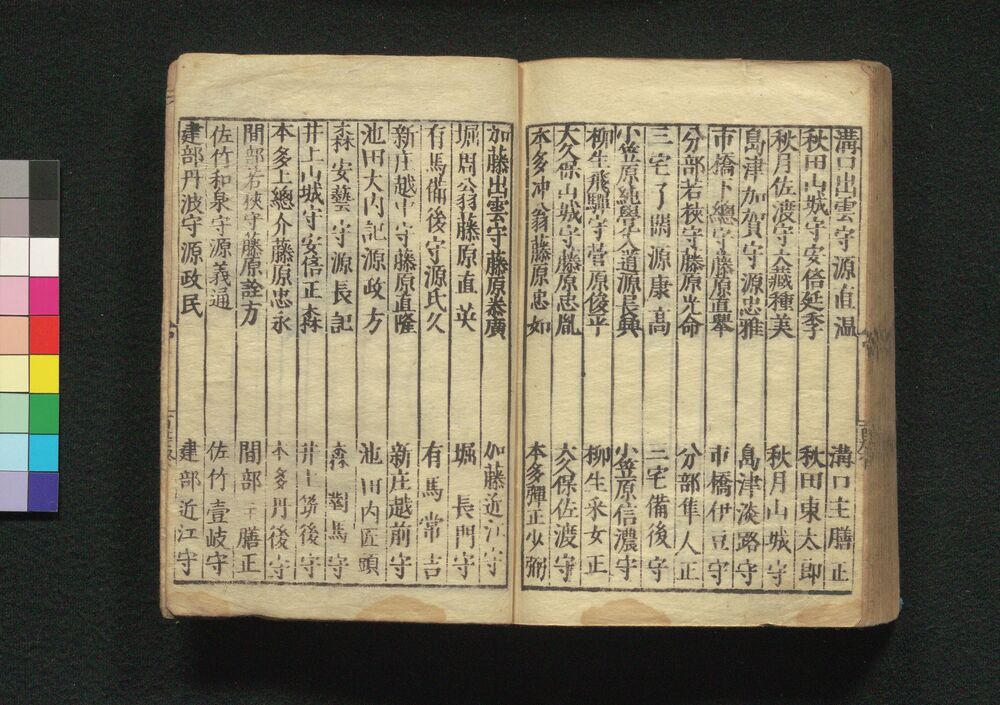 溝口出雲守源直温 溝口主膳正
秋田山城守安倍延季 秋田東太郎
秋月佐渡守大藏種美 秋月山城守
島津加賀守源忠雅 島津淡路守
市橋下總守藤原直擧 市橋伊豆守
分部若狹守藤原光命 分部隼人正
三宅了閑源康高 三宅備後守
小笠原純學大道源長興 小笠原信濃守
柳生飛驒守菅原俊平 柳生采女正
大久保山城守藤原忠胤 大久保佐渡守
本多冲翁藤原忠如 本多彈正少弼
加藤出雲守藤原泰廣 加藤近江守
堀周翁藤原直英 堀長門守
有馬備後守源氏久 有馬常吉
新庄越中守藤原直隆 新庄越前守
池田大内記源政方 池田内匠頭
森安藝守源長記 森對馬守
井上山城守安倍正森 井上筑後守
本多上總介藤原忠永 本多丹後守
間部若狹守藤原詮方 間部主膳正
佐竹和泉守源義通 佐竹壹岐守
建部丹波守源政民 建部近江守